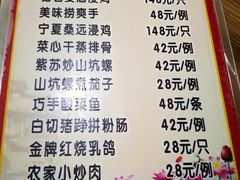 148元/只
美味捞爽手 48元/例
宁夏桑远浸鸡 148元/只
菜心干蒸排骨 42元/例
紫苏炒山坑螺 42元/例
山坑螺煮茄子 28元/例
巧手酸菜鱼 48元/条
白切猪踭拼粉肠 42元/例
金牌红烧乳鸽 28元/只
农家小炒肉 28元/例